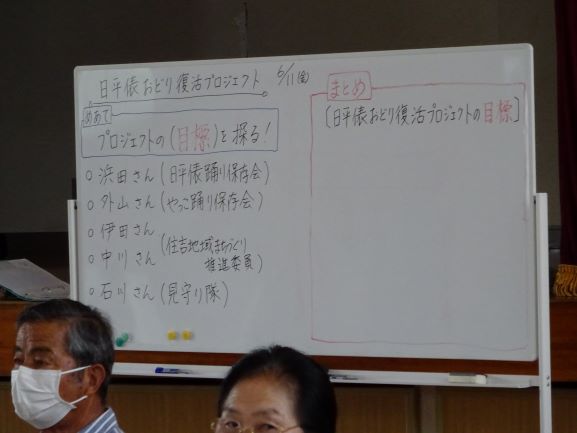 日平俵おどり復活プロジェクト 6/11(金)
めあて
プロジェクトの(目標)を探る!
○浜田さん(日平俵踊り保存会)
○外山さん(やっこ踊り保存会)
○伊田さん
○中川さん(住吉地域まちづくり
推進委員)
○石川さん(見守り隊)
まとめ
[日平俵おどり復活プロジェクトの目標]